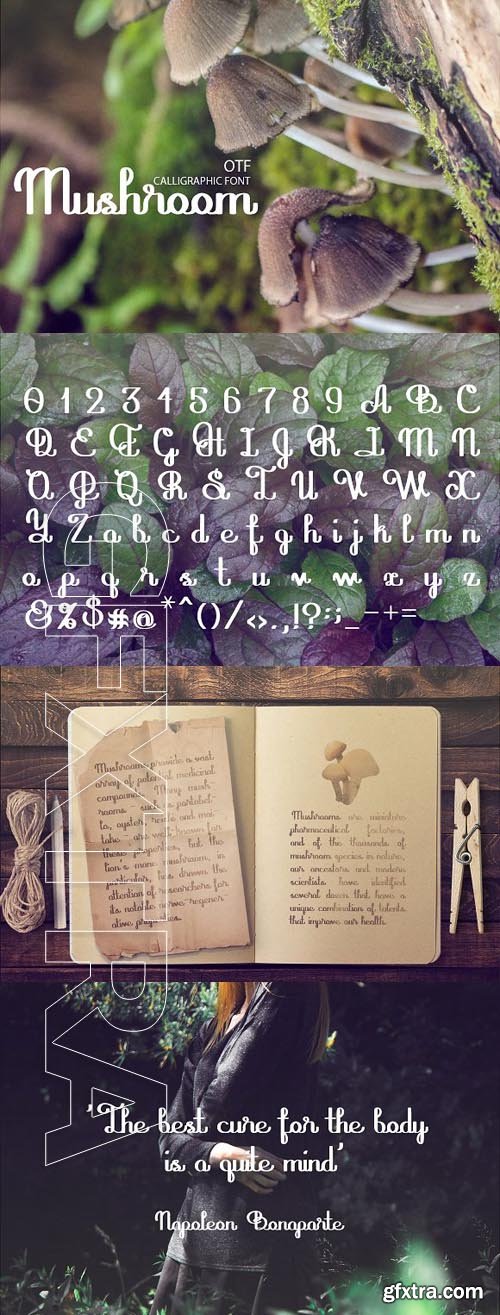 OTF
CALLIGRAPHIC FONT
Mushroom
0 1 2 3 4 5 6 7 8 9 A B C
D E F G H I J K L M N
O P Q R S T U V W X
Y Z a b c d e f g h i j k l m n
o p q r s t u v w x y z
&%$#@*^()/<>.,!?:;_-+=
Mushrooms provide a vast
array of potential medicinal
compounds. Many mush-
rooms - such as portobel-
lo, oyster, reishi and mai-
take - are well-known for
these properties, but the
lion's mane mushroom, in
particular, has drawn the
attention of researchers for
its notable nerve-regener
ative properties.
Mushrooms are miniature
pharmaceutical factories,
and of the thousands of
mushroom species in nature,
our ancestors and modern
scientists have identified
several dozen that have a
unique combination of talents
that improve our health.
'The best cure for the body
is a quite mind'
Napoleon Bonaparte
GFXTRA
gfxtra.com